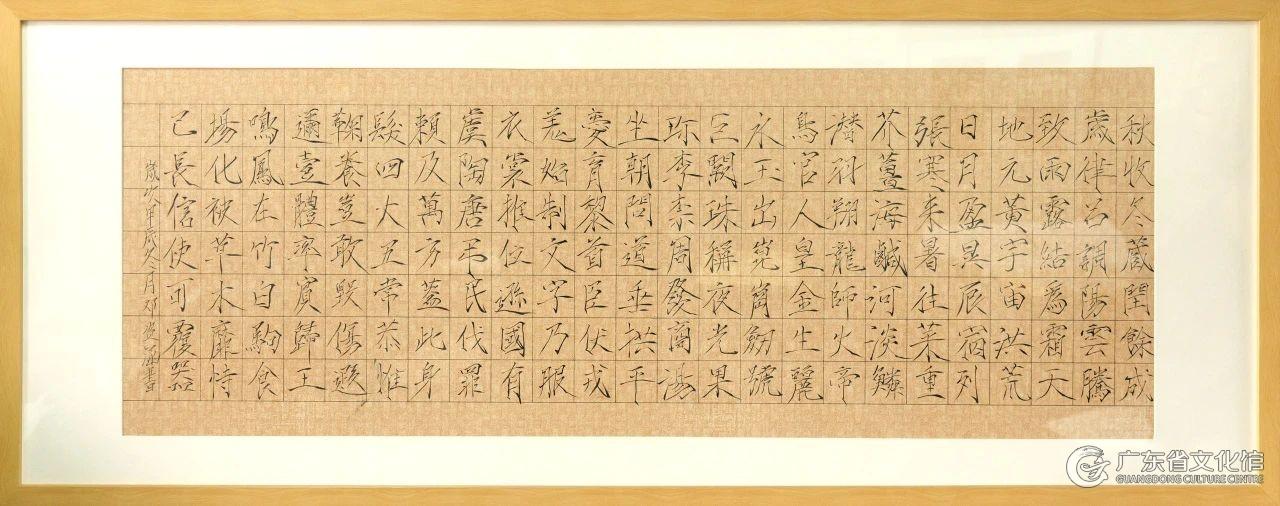 秋收冬藏閏餘成
歲律呂調陽雲騰
致雨露結為霜天
地元黃宇宙洪荒
日月盈昃辰宿列
張寒来暑往菜重
芥薑海鹹河淡鱗
潛羽翔龍師火帝
鳥官人皇金生麗
水玉出崑崗劒號
巨闕珠稱夜光果
珍李柰周發商湯
坐朝問道垂拱平
愛育黎首臣伏戎
羌始制文字乃服
衣裳推位遜國有
虞陶唐弔民伐罪
賴及萬方蓋此身
髮四大五常恭惟
鞠養豈敢毀傷遐
邇壹體率賓歸王
鳴鳳在竹白駒食
場化被草木靡恃
己長信使可覆器
歲次甲辰月邓書
广东省文化馆
GUANGDONG CULTURE CENTRE